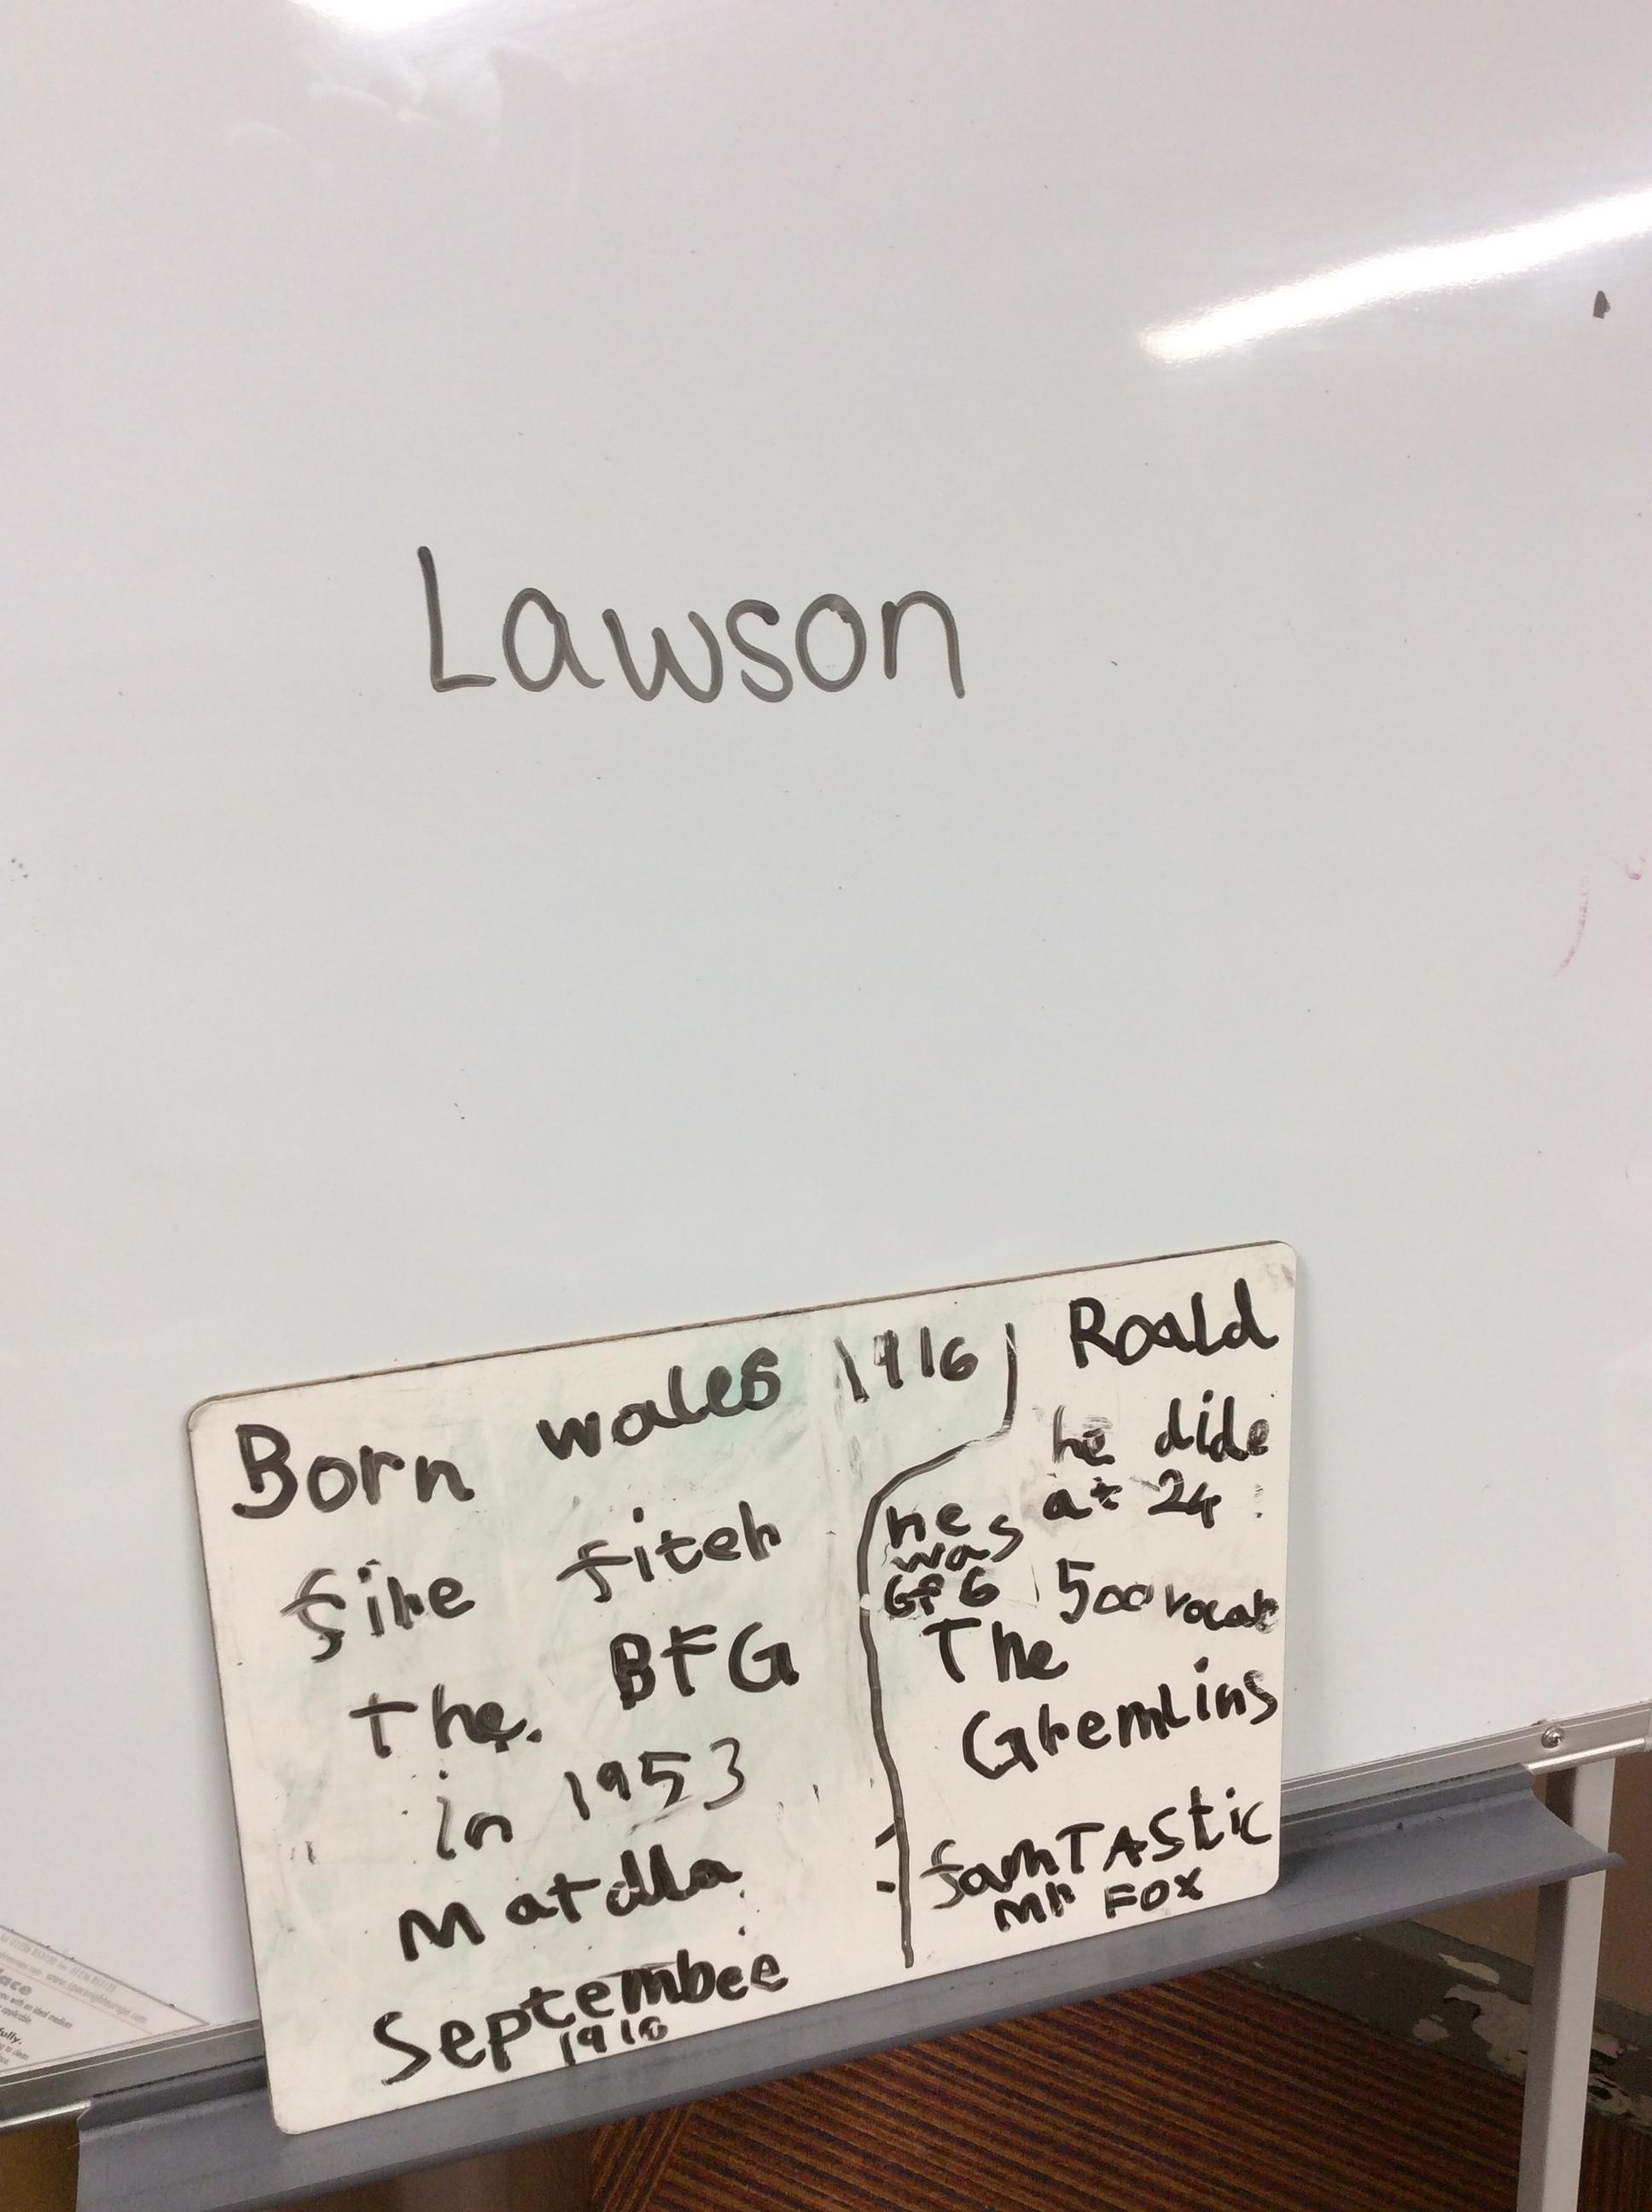 Lawson
Born wales 1916
fire fiter
The. BFG
in 1953
Matdlla
Septembee
1916
Roald
he dide
at 24
he
was
6f6
500 vocab
The
Gremlins
famTAStic
Mr FOX